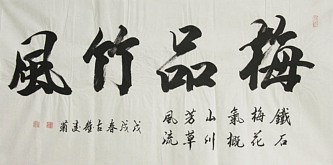 梅品竹風
鐵石
梅花
氣概
山川
芳草
風流
戊戌春古